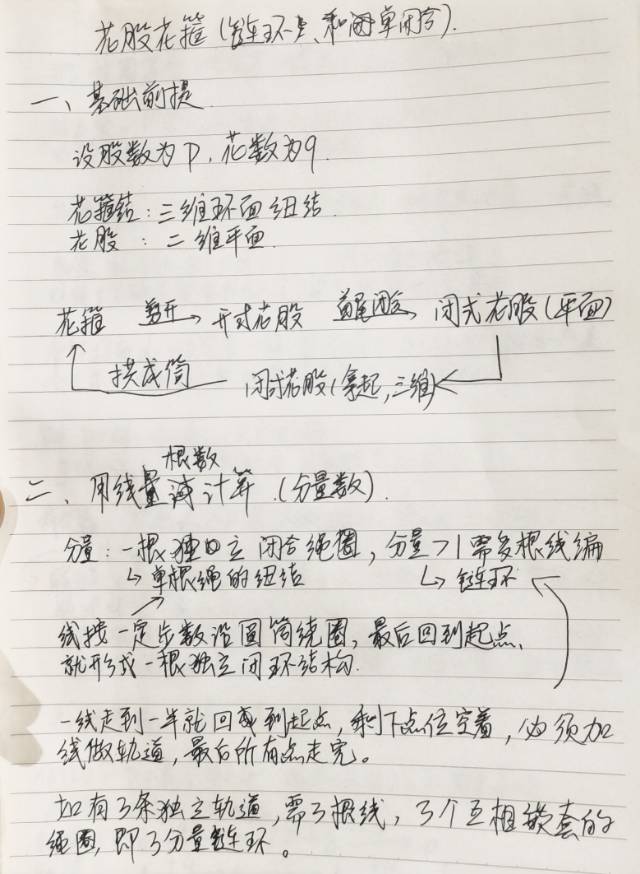 花股花箍(链环、和单闭合).
一、基础前提
设股数为P,花数为q.
花箍结:三维环面纽结.
花股:二维平面.
花箍 剪开 开式花股 首尾闭合 闭式花股(平面)
拱成筒 闭式花股(拿起,三维)
根数
二、用线量计算.(分量数).
分量:一根独立闭合绳圈,分量>1需多根线编
↳单根绳的纽结 ↳链环
线按一定步数沿圆筒绕圈,最后回到起点、
就形成一根独立闭环结构.
一线走到一半就回到起点,剩下点位空着,必须加
线做轨道,最后所有点走完。
如有3条独立轨道,需3根线,3个互相嵌套的
绳圈,即3分量链环。